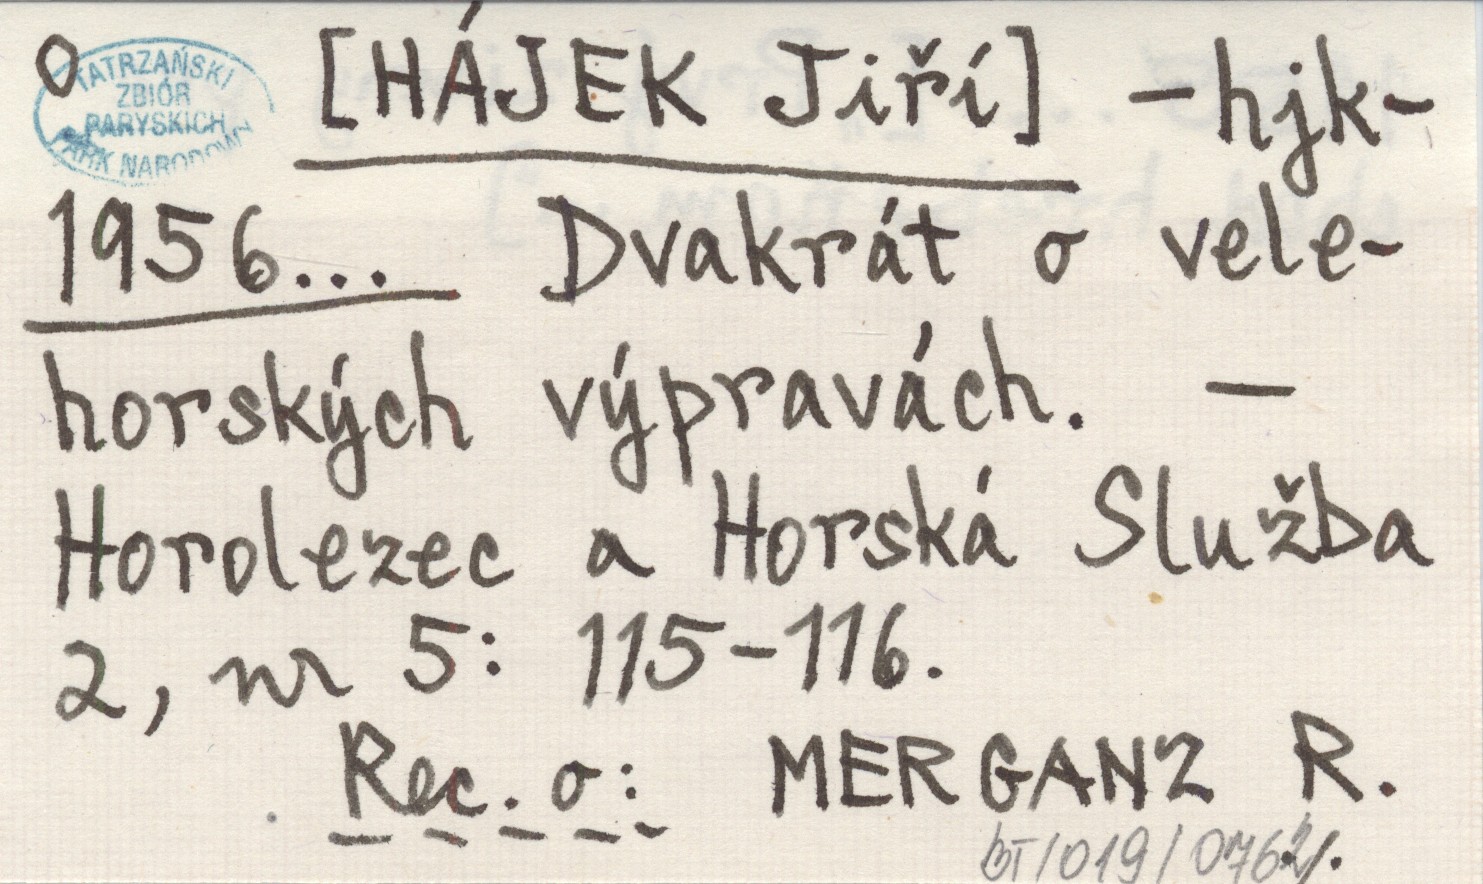 O [HÁJEK Jiří] -hjk-
TATRZAŃSKI
ZBIÓR
PARYSKICH
PARK NARODOWY
1956... Dvakrát o vele-
horských výpravách. —
Horolezec a Horská Služba
2, nr 5: 115-116.
Rec. o: MERGANZ R.
BT/019/0762/.